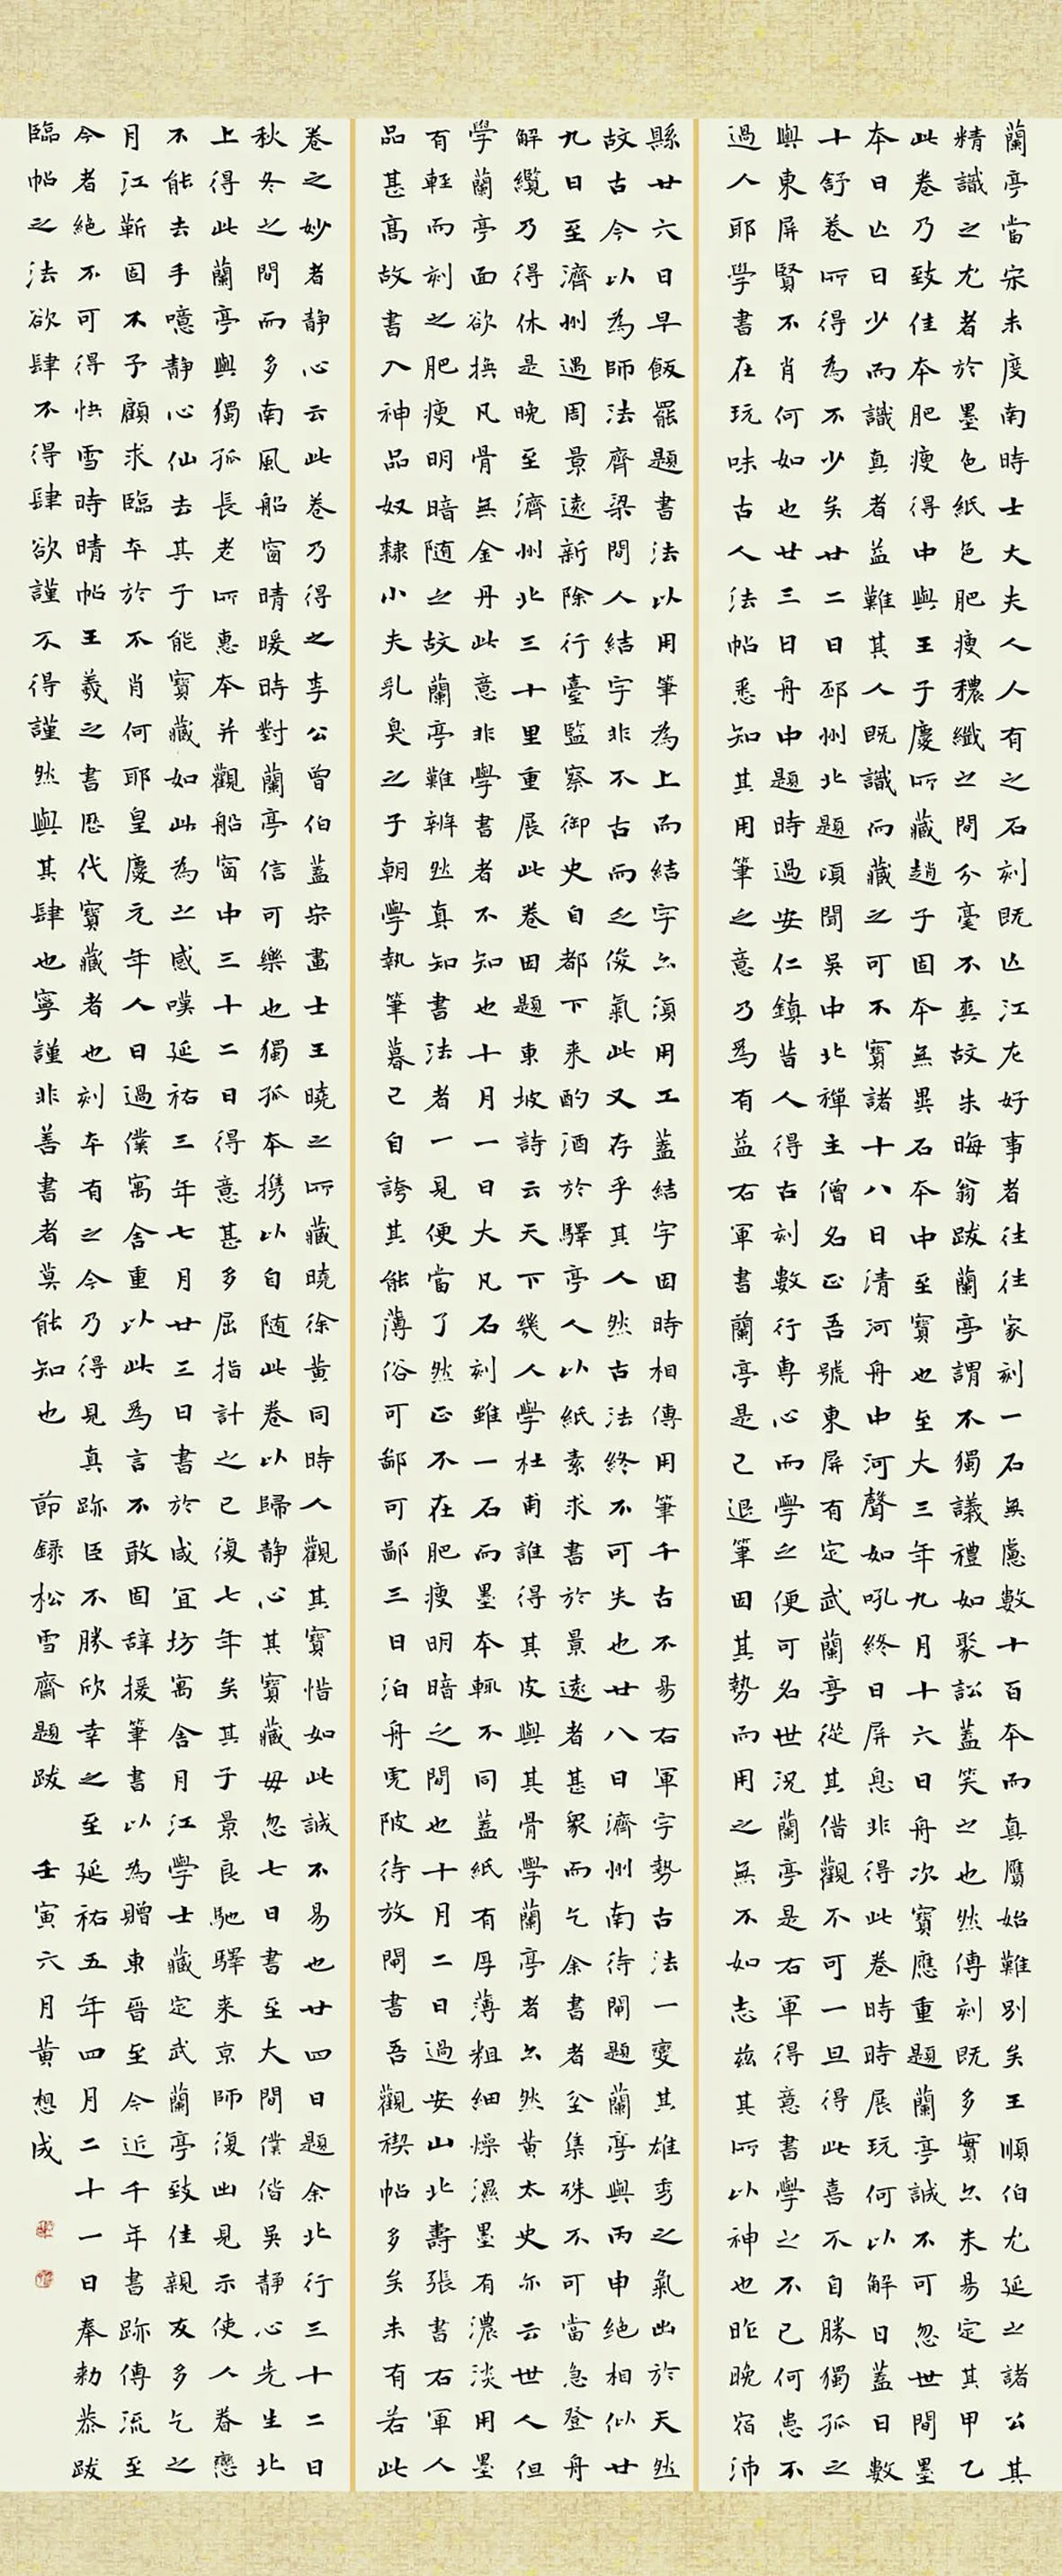 蘭亭當宋未度南時士大夫人人有之石刻既亾江左好事者往往家刻一石無慮數十百本而真贋始難別矣王順伯尤延之諸公其
精識之尤者於墨色紙色肥瘦穠纖之間分毫不爽故朱晦翁跋蘭亭謂不獨議禮如聚訟蓋笑之也然傳刻既多實亦未易定其甲乙
此卷乃致佳本肥瘦得中與王子慶所藏趙子固本無異石本中至寶也至大三年九月十六日舟次寶應重題蘭亭誠不可忽世間墨
本日亾日少而識真者益難其人既識而藏之可不寶諸十八日清河舟中河聲如吼終日屏息非得此卷時時展玩何以解日蓋日數
十舒卷所得為不少矣廿二日邳州北題頃聞吳中北禪主僧名正吾號東屏有定武蘭亭從其借觀不可一旦得此喜不自勝獨孤之
與東屏賢不肖何如也廿三日舟中題時過安仁鎮昔人得古刻數行専心而學之便可名世況蘭亭是右軍得意書學之不已何患不
過人耶學書在玩味古人法帖悉知其用筆之意乃為有益右軍書蘭亭是已退筆因其勢而用之無不如志茲其所以神也昨晚宿沛
縣廿六日早飯罷題書法以用筆為上而結字亦須用工蓋結字因時相傳用筆千古不易右軍字勢古法一變其雄秀之氣出於天然
故古今以為師法齊梁間人結字非不古而乏俊氣此又存乎其人然古法終不可失也廿八日濟州南待閘題蘭亭與丙申絕相似廿
九日至濟州遇周景遠新除行臺監察御史自都下来酌酒於驛亭人以紙素求書於景遠者甚眾而乞余書者坌集殊不可當急登舟
解纜乃得休是晚至濟州北三十里重展此卷因題東坡詩云天下幾人學杜甫誰得其皮與其骨學蘭亭者亦然黃太史亦云世人但
學蘭亭面欲換凡骨無金丹此意非學書者不知也十月一日大凡石刻雖一石而墨本輒不同蓋紙有厚薄粗細燥濕墨有濃淡用墨
有輕而刻之肥瘦明暗随之故蘭亭難辨然真知書法者一見便當了然正不在肥瘦明暗之間也十月二日過安山北壽張書右軍人
品甚高故書入神品奴隸小夫乳臭之子朝學執筆暮已自誇其能薄俗可鄙可鄙三日泊舟虎陂待放閘書吾觀禊帖多矣未有若此
卷之妙者静心云此卷乃得之李公曾伯蓋宋畫士王曉之所藏曉徐黃同時人觀其寶惜如此誠不易也廿四日題余北行三十二日
秋冬之間而多南風船窗晴暖時對蘭亭信可樂也獨孤本携以自随此卷以歸静心其寶藏毋忽七日書至大間僕偕吳静心先生北
上得此蘭亭與獨孤長老所惠本并觀船窗中三十二日得意甚多屈指計之已復七年矣其子景良馳驛来京師復出見示使人眷戀
不能去手噫静心仙去其子能寶藏如此為之感嘆延祐三年七月廿三日書於咸宜坊寓舍月江學士藏定武蘭亭致佳親友多乞之
月江靳固不予顧求臨本於不肖何耶皇慶元年人日過僕寓舍重以此為言不敢固辞援筆書以為贈東晉至今近千年書跡傳流至
今者絕不可得快雪時晴帖王羲之書歷代寶藏者也刻本有之今乃得見真跡臣不勝欣幸之至延祐五年四月二十一日奉勅恭跋
臨帖之法欲肆不得肆欲謹不得謹然與其肆也寧謹非善書者莫能知也 節録松雪齋題跋 壬寅六月黃想成